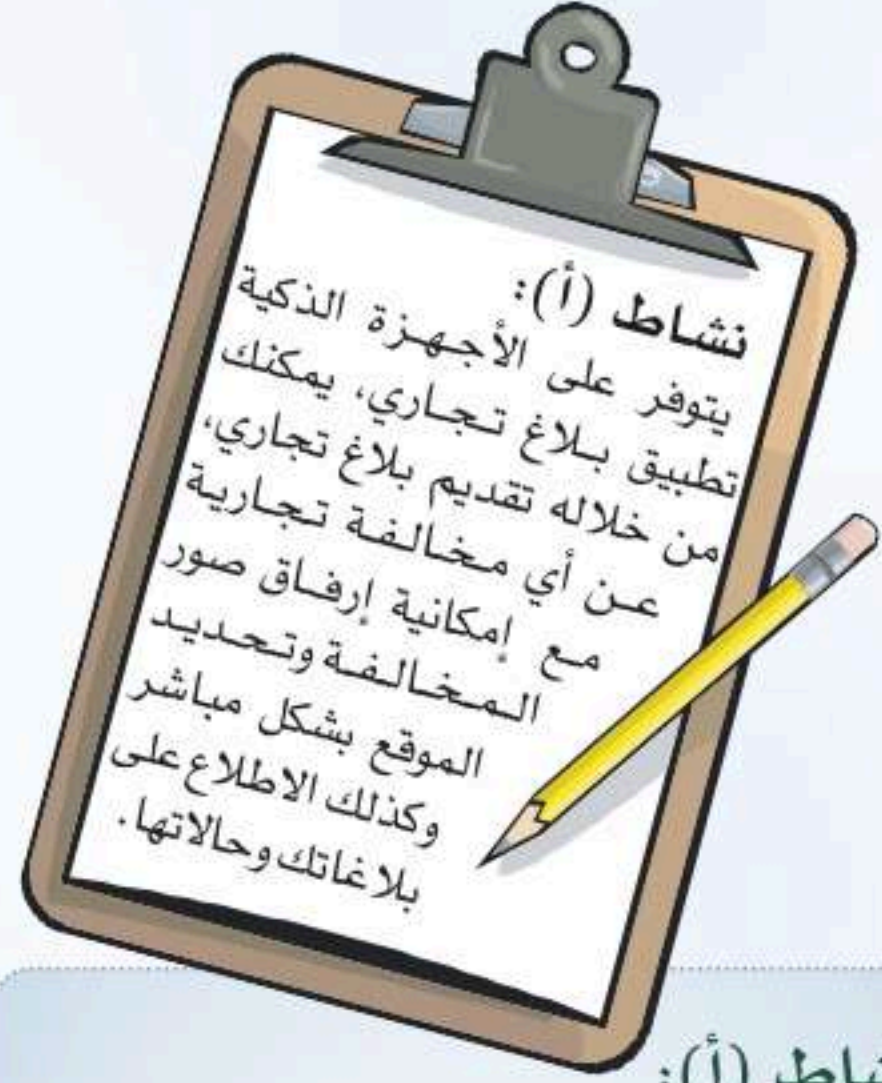 نشاط (أ):
يتوفر على الأجهزة الذكية
تطبيق بلاغ تجاري، يمكنك
من خلاله تقديم بلاغ تجاري،
عن أي مخالفة تجارية
مع إمكانية إرفاق صور
المخالفة وتحديد
الموقع بشكل مباشر
وكذلك الاطلاع على
بلاغاتك وحالاتها.
نشاط (أ):